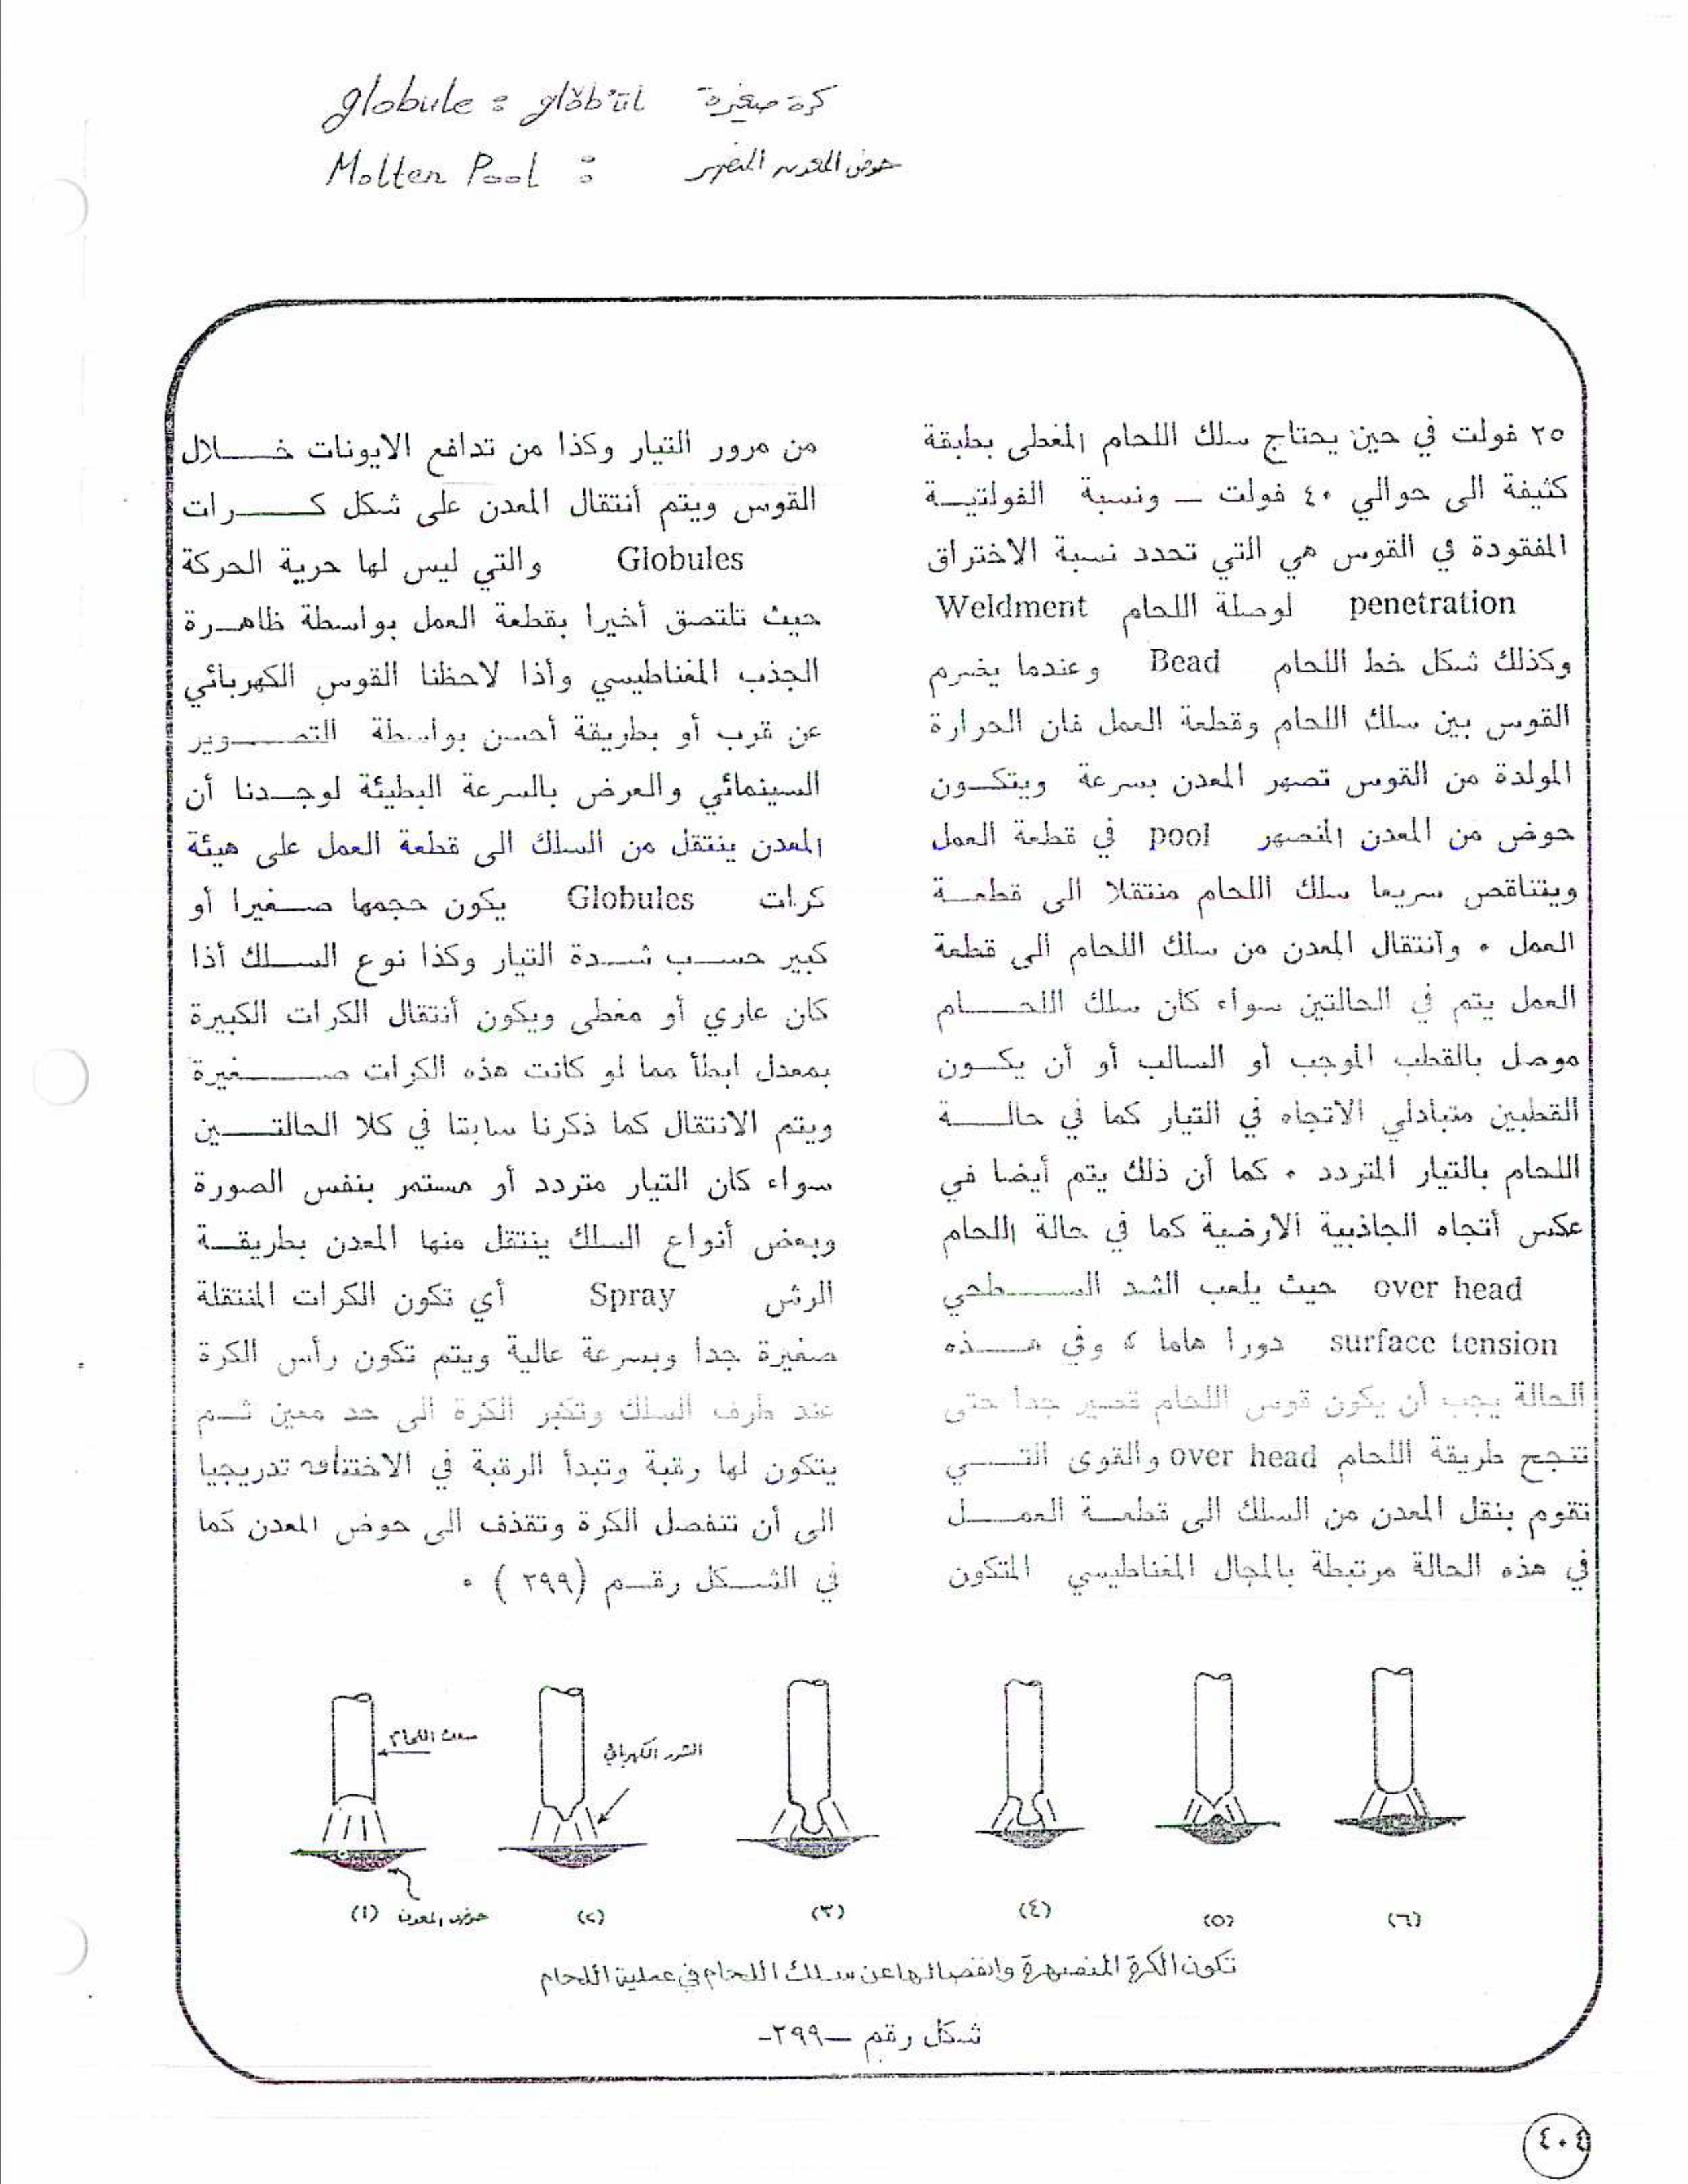 globule : glŏb'ūl كرة صغيرة
Molten Pool : حوض المعدن المنصهر
٢٥ فولت في حين يحتاج سلك اللحام المغطى بطبقة
كثيفة الى حوالي ٤٠ فولت ــ ونسبة الفولتيــة
المفقودة في القوس هي التي تحدد نسبة الاختراق
penetration لوصلة اللحام Weldment
وكذلك شكل خط اللحام Bead وعندما يضرم
القوس بين سلك اللحام وقطعة العمل فان الحرارة
المولدة من القوس تصهر المعدن بسرعة ويتكــون
حوض من المعدن المنصهر pool في قطعة العمل
ويتناقص سريعا سلك اللحام منتقلا الى قطعــة
العمل ٠ وأنتقال المعدن من سلك اللحام الى قطعة
العمل يتم في الحالتين سواء كان سلك اللحـــام
موصل بالقطب الموجب أو السالب أو أن يكــون
القطبين متبادلي الاتجاه في التيار كما في حالـــة
اللحام بالتيار المتردد ٠ كما أن ذلك يتم أيضا في
عكس أتجاه الجاذبية الارضية كما في حالة اللحام
over head حيث يلعب الشد الســـطحي
surface tension دورا هاما ، وفي هـــذه
الحالة يجب أن يكون قوس اللحام قصير جدا حتى
تنجح طريقة اللحام over head والقوى التـــي
تقوم بنقل المعدن من السلك الى قطعــة العمـــل
في هذه الحالة مرتبطة بالمجال المغناطيسي المتكون
من مرور التيار وكذا من تدافع الايونات خـــلال
القوس ويتم أنتقال المعدن على شكل كــــرات
Globules والتي ليس لها حرية الحركة
حيث تلتصق أخيرا بقطعة العمل بواسطة ظاهــرة
الجذب المغناطيسي وأذا لاحظنا القوس الكهربائي
عن قرب أو بطريقة أحسن بواسطة التصـــوير
السينمائي والعرض بالسرعة البطيئة لوجــدنا أن
المعدن ينتقل من السلك الى قطعة العمل على هيئة
كرات Globules يكون حجمها صــغيرا أو
كبير حســب شــدة التيار وكذا نوع الســلك أذا
كان عاري أو مغطى ويكون أنتقال الكرات الكبيرة
بمعدل ابطأ مما لو كانت هذه الكرات صــــغيرة
ويتم الانتقال كما ذكرنا سابقا في كلا الحالتـــين
سواء كان التيار متردد أو مستمر بنفس الصورة
وبعض أنواع السلك ينتقل منها المعدن بطريقــة
الرش Spray أي تكون الكرات المنتقلة
صغيرة جدا وبسرعة عالية ويتم تكون رأس الكرة
عند طرف السلك وتكبر الكرة الى حد معين ثــم
يتكون لها رقبة وتبدأ الرقبة في الاختناقه تدريجيا
الى أن تنفصل الكرة وتقذف الى حوض المعدن كما
في الشــكل رقــم (٢٩٩) ٠
سلك اللحام
الشرر الكهربائي
حوض المعدن
(١) (٢) (٣) (٤) (٥) (٦)
تكون الكرة المنصهرة وانفصالها عن سلك اللحام في عملية اللحام
شكل رقم —٢٩٩-
٤٠٤